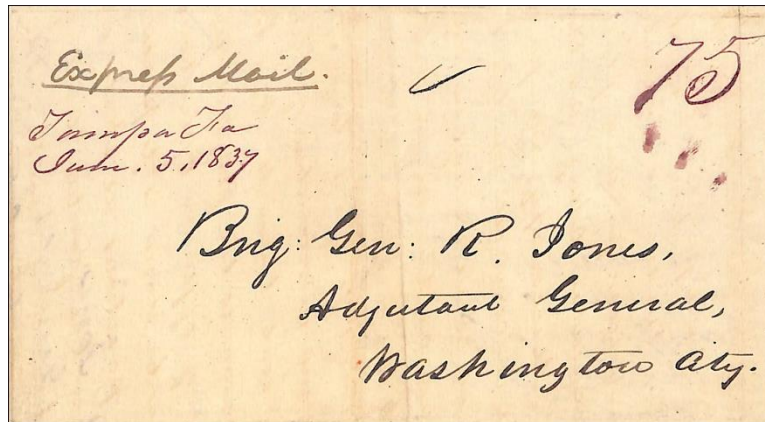 Express Mail.
75
Tampa Fa
Jun. 5, 1837
Brig: Gen: R. Jones,
Adjutant General,
Washington City.